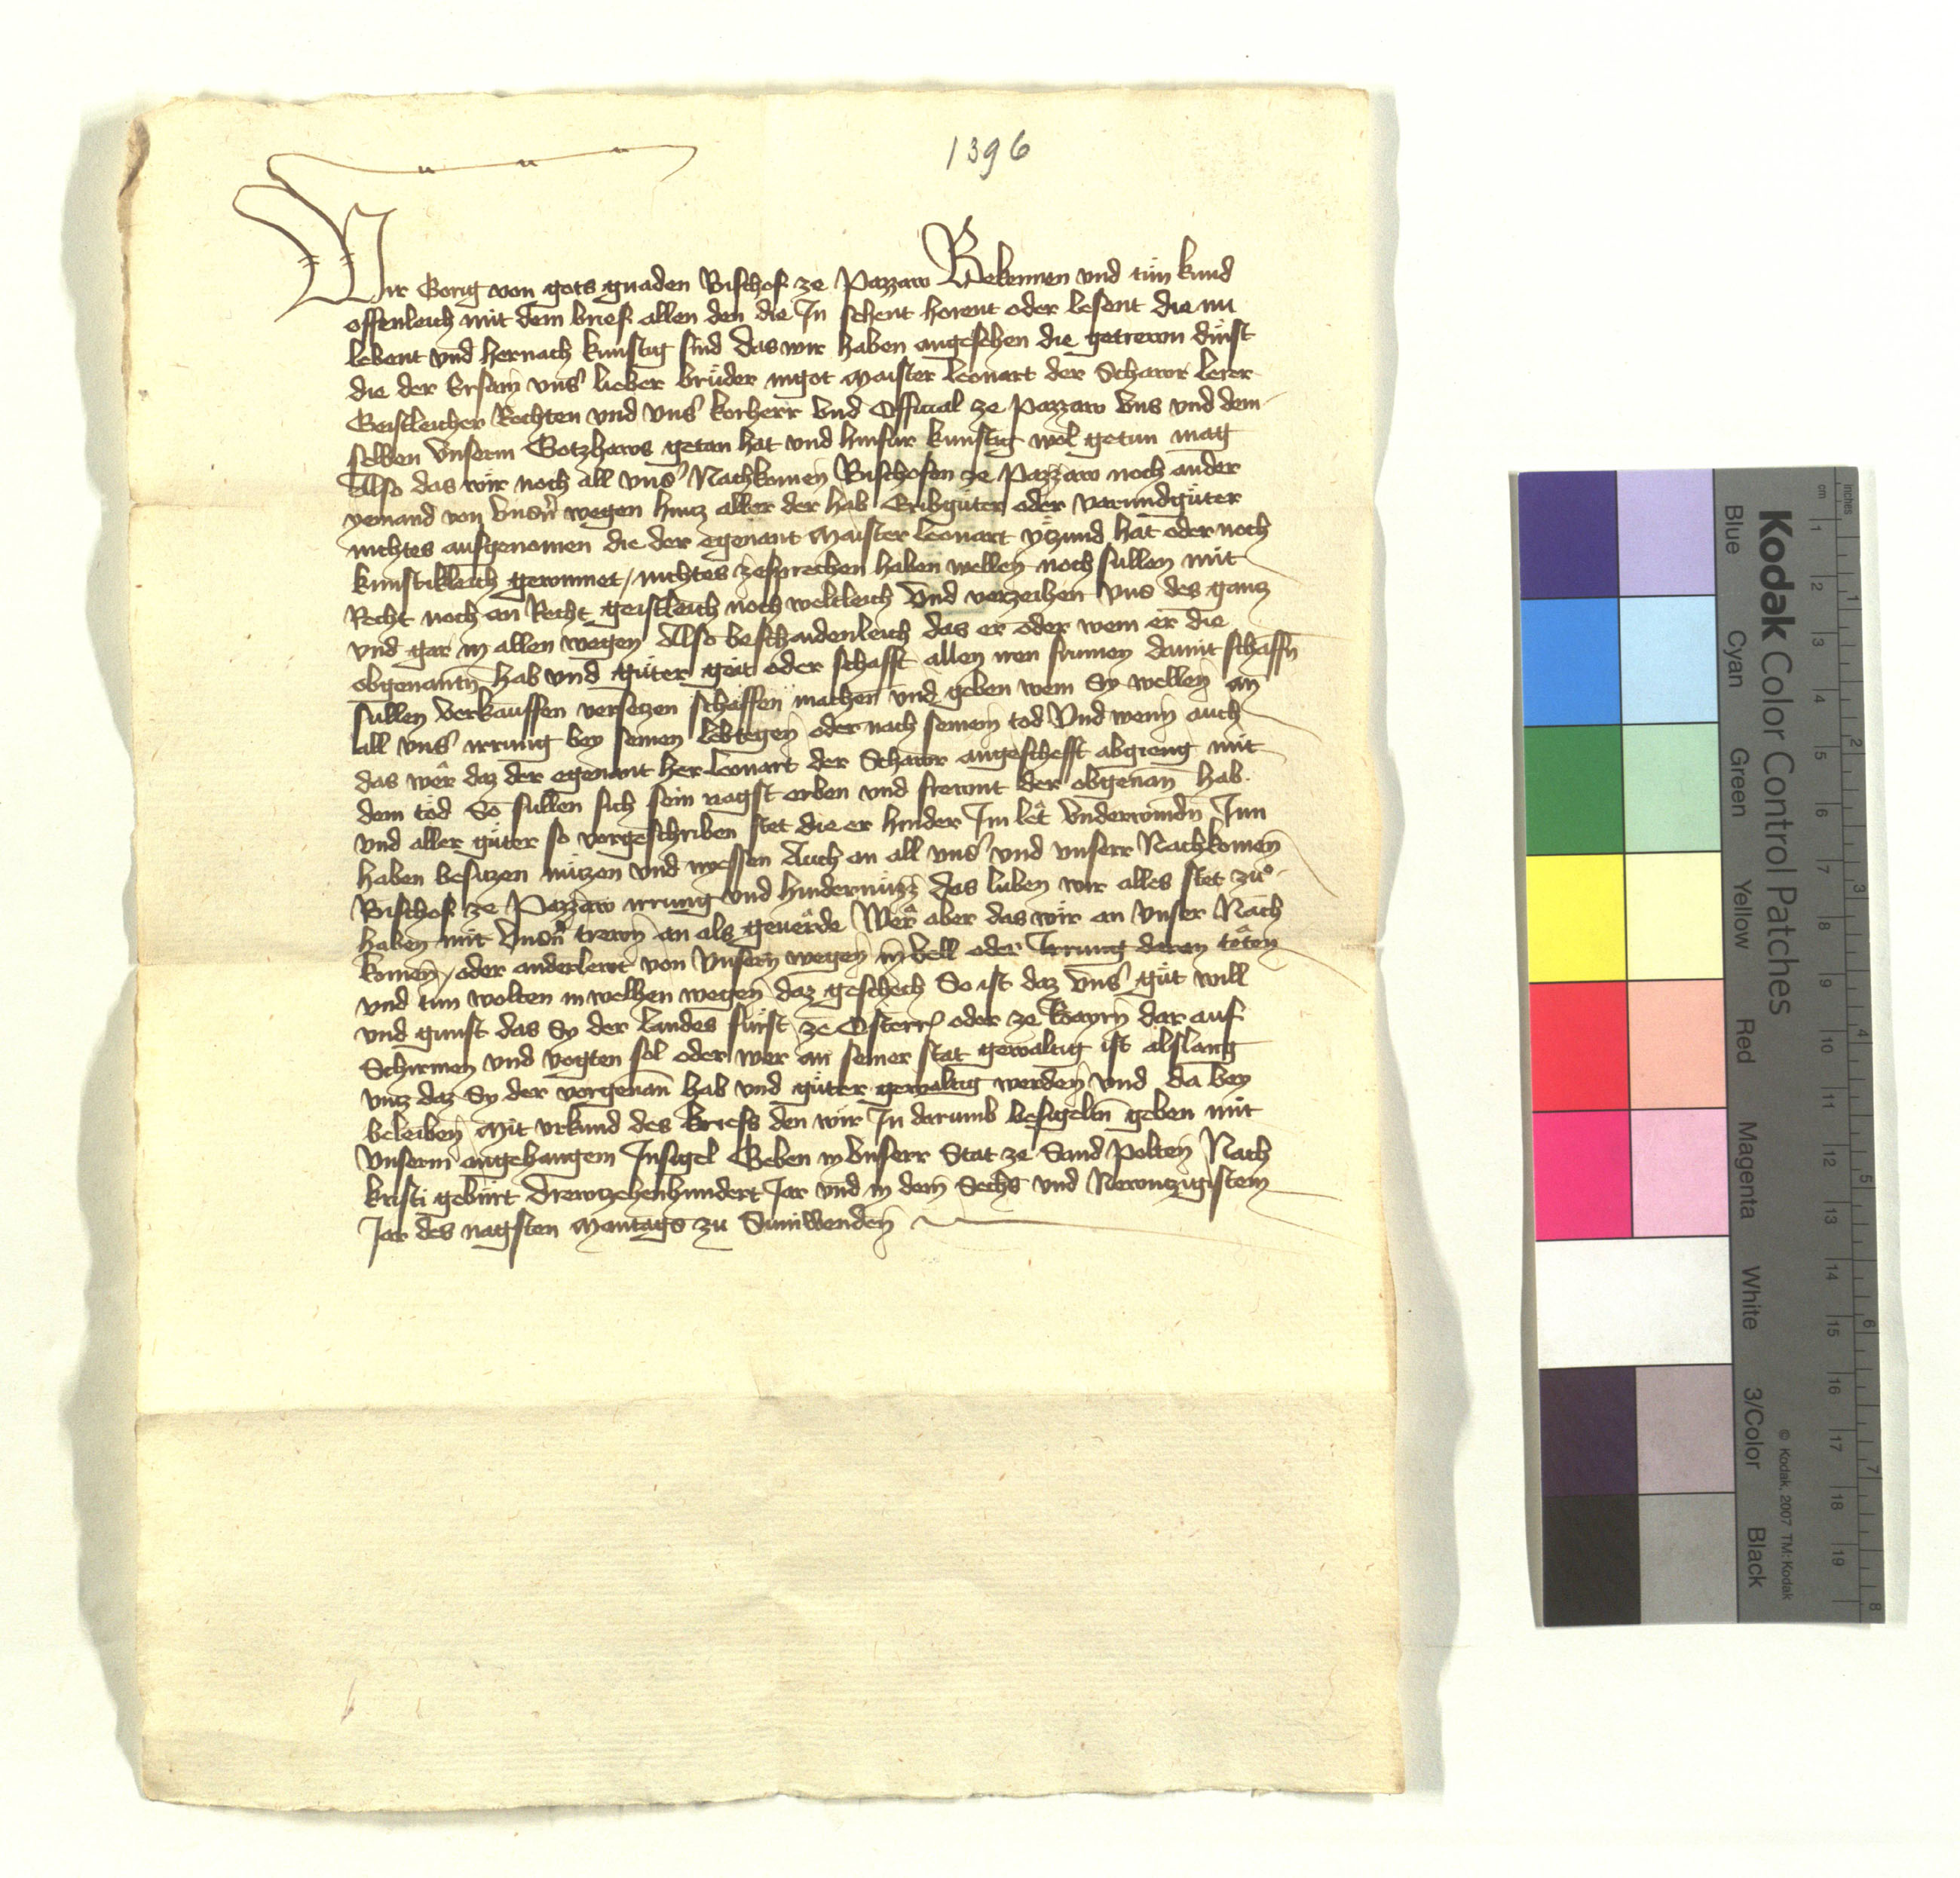 1396
Wir Gorig von gots gnaden Bischof ze Pazzaw Bekennen und tun kund
offenleich mit dem brief allen den die In sehent horent oder lesent die nu
lebent und hernach kunftig sind das wir haben angesehen die getrewn dinst
die der Ersam uns' lieber bruder in got Maister Leonart der Schawr Lerer
Geistleicher Rechten und uns' korherr und Official ze Pazzaw uns und dem
selben unserm Gotzhaws getan hat und hinfur kunftig wol getun mag
Also das wir noch all uns' Nachkomen Bischofen ze Pazzaw noch ander
yemand von unsn' wegen hintz aller der hab Eribguter oder varundguter
nichtes ausgenomen die der egenant Maister Leonart yczund hat oder noch
kunftikleich gewinnet / nichtes zesprechen haben wellen noch sullen mit
Recht noch an Recht geistleich noch weltleich Und verzeihen uns des gantz
und gar in allen wegen Also beschaidenleich das er oder wem er die
obgenantn hab und guter geit oder schafft allen iren frumen damit schaffn
sullen verkauffen versetzen schaffen machen und geben wem Sy wellen an
all uns' irrung bey seinen lebtegen oder nach seinem tod Und wenn auch
das wer daz der egenant her Leonart der Schawr angeschefft abgieng mit
dem tod So sullen sich sein nagst erben und frewnt der obgenan hab
und aller guter so vorgeschriben stet die er hinder Im let underwindn Inn
haben besitzen nutzen und niessen Auch an all uns' und unserr Nachkomen
Bischof ze Pazzaw irrung und hindernuzz das luben wir alles stet zu
haben mit unsn' trewn an als geuerde Wer aber das wir an unser Nach
komen / oder anderlewt von unsern wegen in vell oder Irrung daran teten
und tun wolten in welhen wegen daz geschech So ist daz uns' gut will
und gunst das Sy der landes furst ze Osterr oder ze Bayrn dar auf
Schirmen und vogten sol oder wer an seiner stat gewaltig ist alslang
untz daz Sy der vorgenan hab und guter gewaltig werden und da bey
beleiben Mit urkund des briefs den wir In darumb besigeltn geben mit
unserm anhangem Insigel Geben in unserr Stat ze Sand Polten Nach
kristi geburt drewtzehenhundert Jar und in dem Sechs und Newntzigistem
Jar des nagsten Mantags zu Sunibenden
Kodak Color Control Patches
Blue Cyan Green Yellow Red Magenta White 3/Color Black
© Kodak, 2007 TM: Kodak
inches 1 2 3 4 5 6 7 8
cm 1 2 3 4 5 6 7 8 9 10 11 12 13 14 15 16 17 18 19